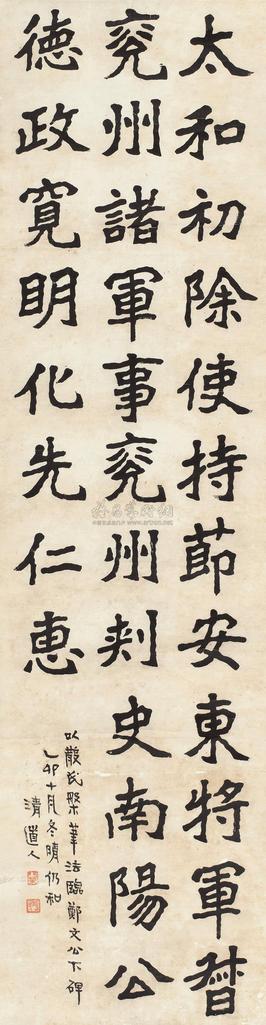 太和初除使持節安東將軍督
兖州諸軍事兖州刾史南陽公
德政寬明化先仁惠
以散氏槃筆法臨鄭文公下碑
乙卯十月冬晴仍和
清道人